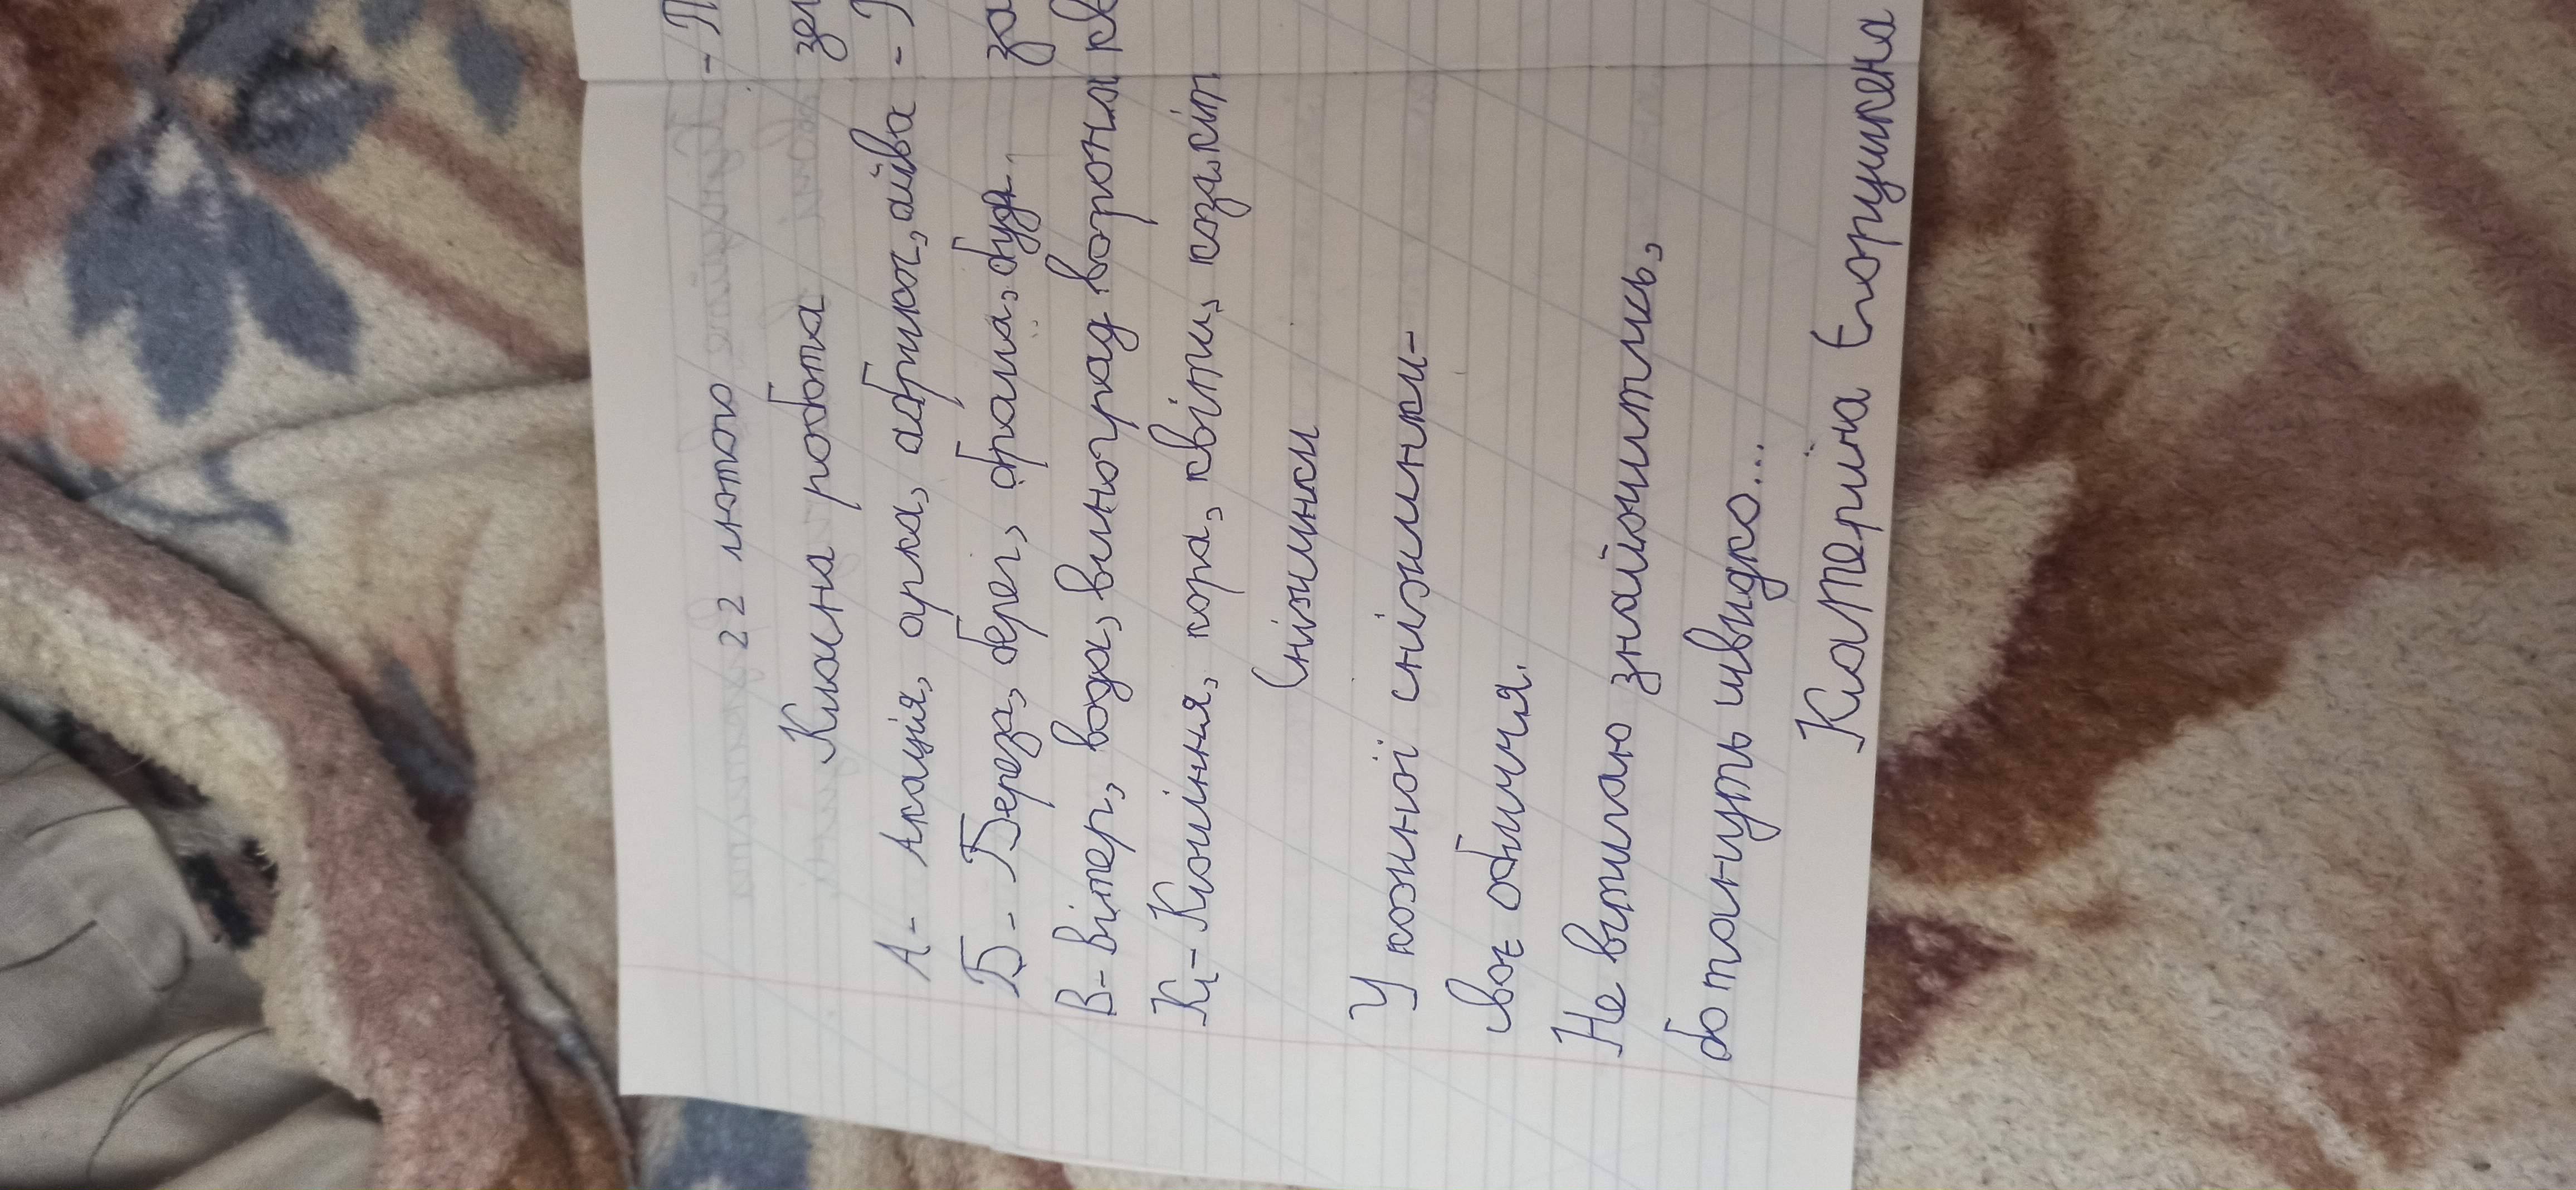 22 лютого
Класна робота
А - Акація, арка, абрикос, айва
Б - Береза, берег, брама, буда...
В - Вітер, вода, виноград ворона
К - Каміння, кора, квіти, коза, кіт
Сніжинки
У кожної сніжинки -
своє обличчя.
Не встигаю знайомитись,
бо тануть швидко...
Катеріна Єгорушкіна